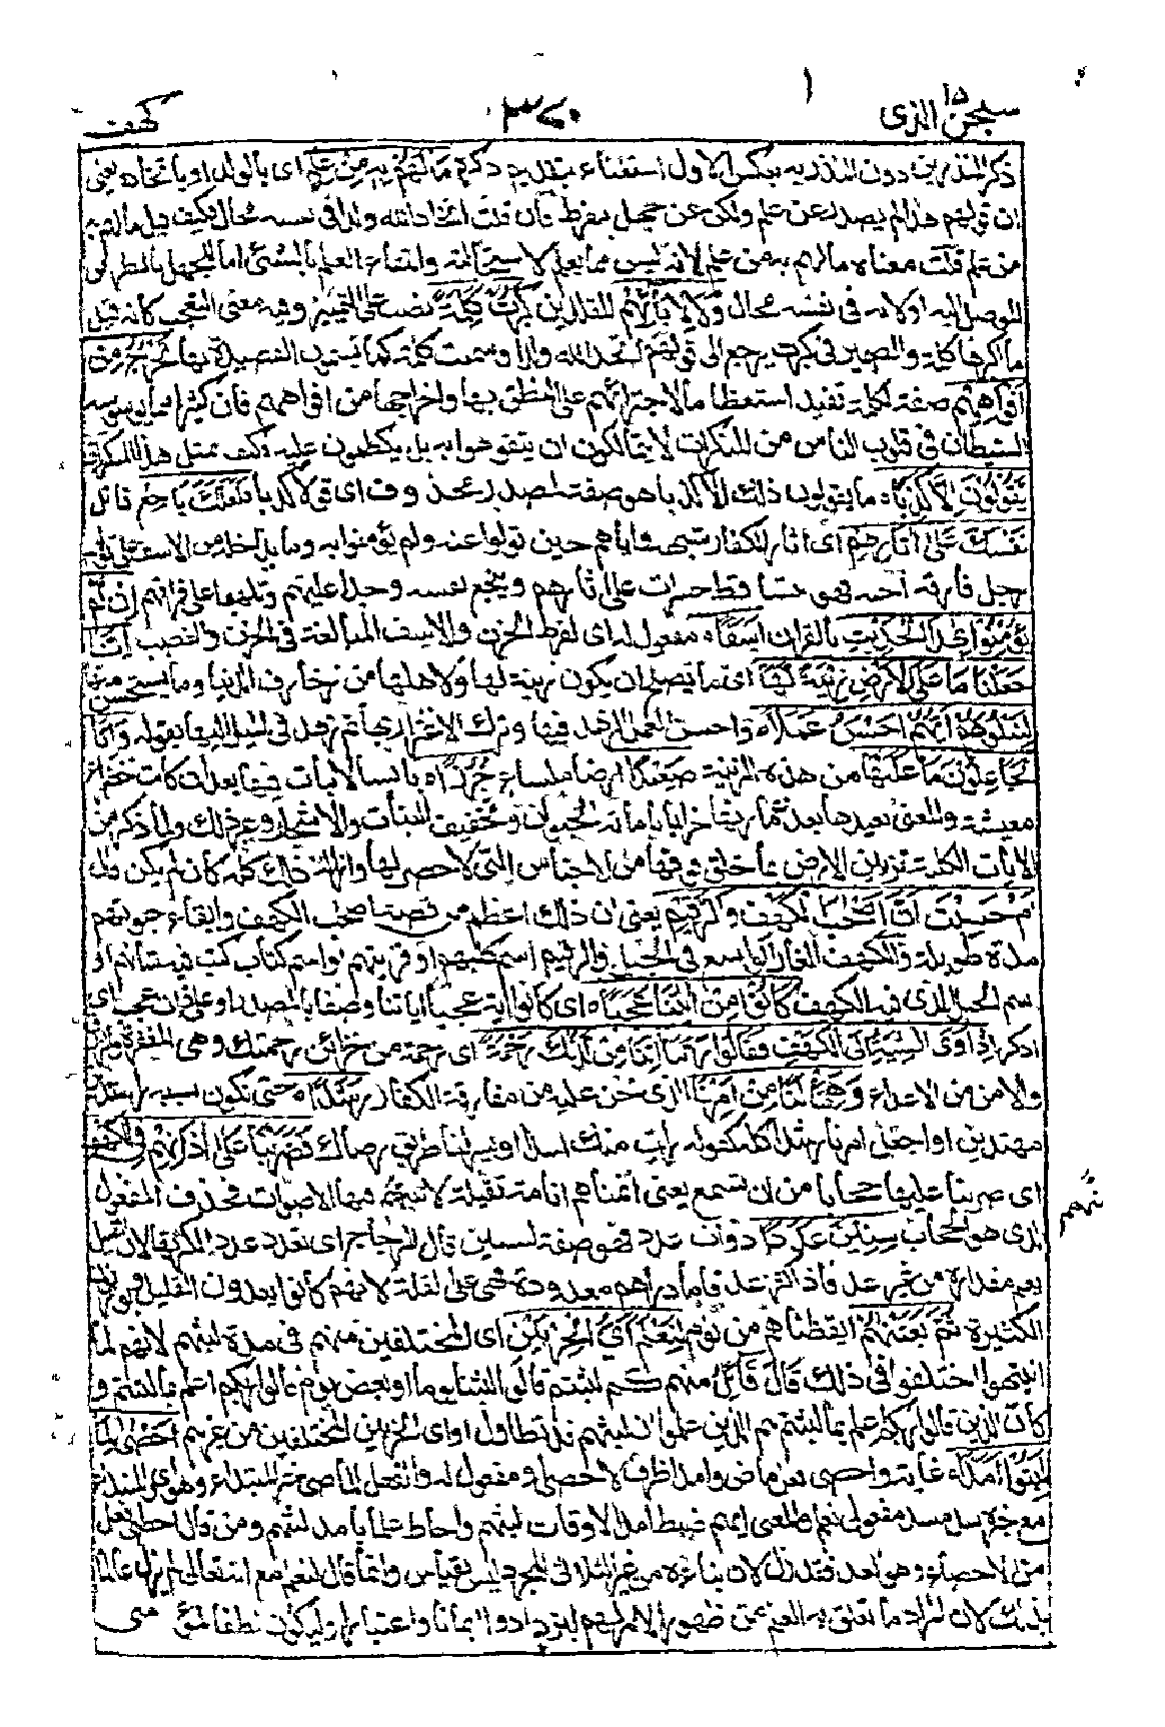 سبحن الذى ١٥ ٣٧٠ كهف
ذكر المنذرين دون المنذر به بعكس الاول استغناء بتقديم ذكره مَا لَهُمْ بِهِ مِنْ عِلْمٍ اى بالولد او باتخاذه يعنى
ان قولهم هذا لم يصدر عن علم ولكن عن جهل مفرط فان قلت اتخاذ الله ولدا فى نفسه محال فكيف قيل ما لهم به
من علم قلت معناه ما لهم به من علم لانه ليس مما يعلم لاستحالته وانتفاء العلم بالشئ اما للجهل بالطريق
الموصل اليه او لانه فى نفسه محال وَلَا لِاٰبَآئِهِمْ المقلدين كَبُرَتْ كَلِمَةً نصب على التمييز وفيه معنى التعجب كانه قيل
ما اكبرها كلمة والضمير فى كبرت يرجع الى قولهم اتخذ الله ولدا وسميت كلمة كما يسمون القصيدة بها تَخْرُجُ مِنْ
اَفْوَاهِهِمْ صفة لكلمة تفيد استعظاما لاجترائهم على النطق بها واخراجها من افواههم فان كثيرا مما يوسوسه
الشيطان فى قلوب الناس من المنكرات لا يتمالكون ان يتفوهوا به بل يكظمون عليه فكيف بمثل هذا المنكر اِنْ
يَقُوْلُوْنَ اِلَّا كَذِبًا ما يقولون ذلك الا كذبا هو صفة لمصدر محذوف اى قولا كذبا فَلَعَلَّكَ بَاخِعٌ قاتل
نَفْسَكَ عَلٰى اٰثَارِهِمْ اى اثار الكفار شبهه واياهم حين تولوا عنه ولم يؤمنوا به وما تداخله من الاسف على توليهم
برجل فارقه احبته فهو يتساقط حسرات على اثارهم ويبخع نفسه وجدا عليهم وتلهفا على فراقهم اِنْ لَّمْ
يُؤْمِنُوْا بِهٰذَا الْحَدِيْثِ بالقران اَسَفًا مفعول له اى لفرط الحزن والاسف المبالغة فى الحزن والغضب اِنَّا
جَعَلْنَا مَا عَلَى الْاَرْضِ زِيْنَةً لَّهَا اى ما يصلح ان يكون زينة لها ولاهلها من زخارف الدنيا وما يستحسن منها
لِنَبْلُوَهُمْ اَيُّهُمْ اَحْسَنُ عَمَلًا واحسن العمل الزهد فيها وترك الاغترار بها ثم زهد فى الميل اليها بقوله وَاِنَّا
لَجَاعِلُوْنَ مَا عَلَيْهَا من هذه الزينة صَعِيْدًا ارضا ملساء جُرُزًا يابسا لا نبات فيها بعد ان كانت خضراء
معشبة والمعنى نعيدها بعد عمارتها خرابا باماتة الحيوان وتجفيف النبات والاشجار وغير ذلك ولما ذكر من
الايات الكلية تزيين الارض بما خلق فوقها من الاجناس التى لا حصر لها وازالة ذلك كله كان لم يكن قال
اَمْ حَسِبْتَ اَنَّ اَصْحٰبَ الْكَهْفِ وَالرَّقِيْمِ يعنى ان ذلك اعظم من قصة اصحاب الكهف وابقاء حيوتهم
مدة طويلة والكهف الغار الواسع فى الجبل والرقيم اسم كلبهم او قريتهم او اسم كتاب كتب فى شانهم او
اسم الجبل الذى فيه الكهف كَانُوْا مِنْ اٰيٰتِنَا عَجَبًا اى كانوا اية عجبا من اياتنا وصفا بالمصدر او على ذات عجب اى
اذكر اِذْ اَوَى الْفِتْيَةُ اِلَى الْكَهْفِ فَقَالُوْا رَبَّنَا اٰتِنَا مِنْ لَّدُنْكَ رَحْمَةً اى رحمة من خزائن رحمتك وهى المغفرة والرزق
والامن من الاعداء وَهَيِّئْ لَنَا مِنْ اَمْرِنَا الذى نحن عليه من مفارقة الكفار رَشَدًا حتى نكون بسببه راشدين
مهتدين او اجعل امرنا رشدا كله كقولك رايت منك اسدا او يسر لنا طريق رضاك فَضَرَبْنَا عَلٰى اٰذَانِهِمْ فِى الْكَهْفِ
اى ضربنا عليها حجابا من ان تسمع يعنى انمناهم انامة ثقيلة لا تنبههم فيها الاصوات فحذف المفعول
الذى هو الحجاب سِنِيْنَ عَدَدًا ذوات عدد فهو صفة لسنين قال الزجاج اى تعدد عددا لكثرتها لان القليل
يعلم مقداره من غير عد فاذا كثر عد فاما دراهم معدودة فهى على القلة لانهم كانوا يعدون القليل ويزنون
الكثير ثُمَّ بَعَثْنٰهُمْ ايقظناهم من نومهم لِنَعْلَمَ اَىُّ الْحِزْبَيْنِ اى المختلفين منهم فى مدة لبثهم لانهم لما
انتبهوا اختلفوا فى ذلك قَالَ قَائِلٌ منهم كم لبثتم قالوا لبثنا يوما او بعض يوم قالوا ربكم اعلم بما لبثتم و
كان الذين قالوا ربكم اعلم بما لبثتم هم الذين علموا ان لبثهم قد تطاول او اى الحزبين المختلفين من غيرهم اَحْصٰى لِمَا
لَبِثُوْا اَمَدًا غاية واحصى فعل ماض وامدا ظرف لاحصى او مفعول له والفعل الماضى خبر المبتداء وهو اى والمبتدا
مع خبره سد مسد مفعولى نعلم والمعنى ايهم ضبط امدا لاوقات لبثهم واحاط علما بامد لبثهم ومن قال احصى افعل
من الاحصاء وهو العد فقد زل لان بناءه من غير الثلاثى المجرد ليس بقياس وانما قال لنعلم مع انه تعالى لم يزل عالما
بذلك لان المراد ما تعلق به العلم من ظهور الامر لهم ليزدادوا ايمانا واعتبارا وليكون لطفا لمؤمنى